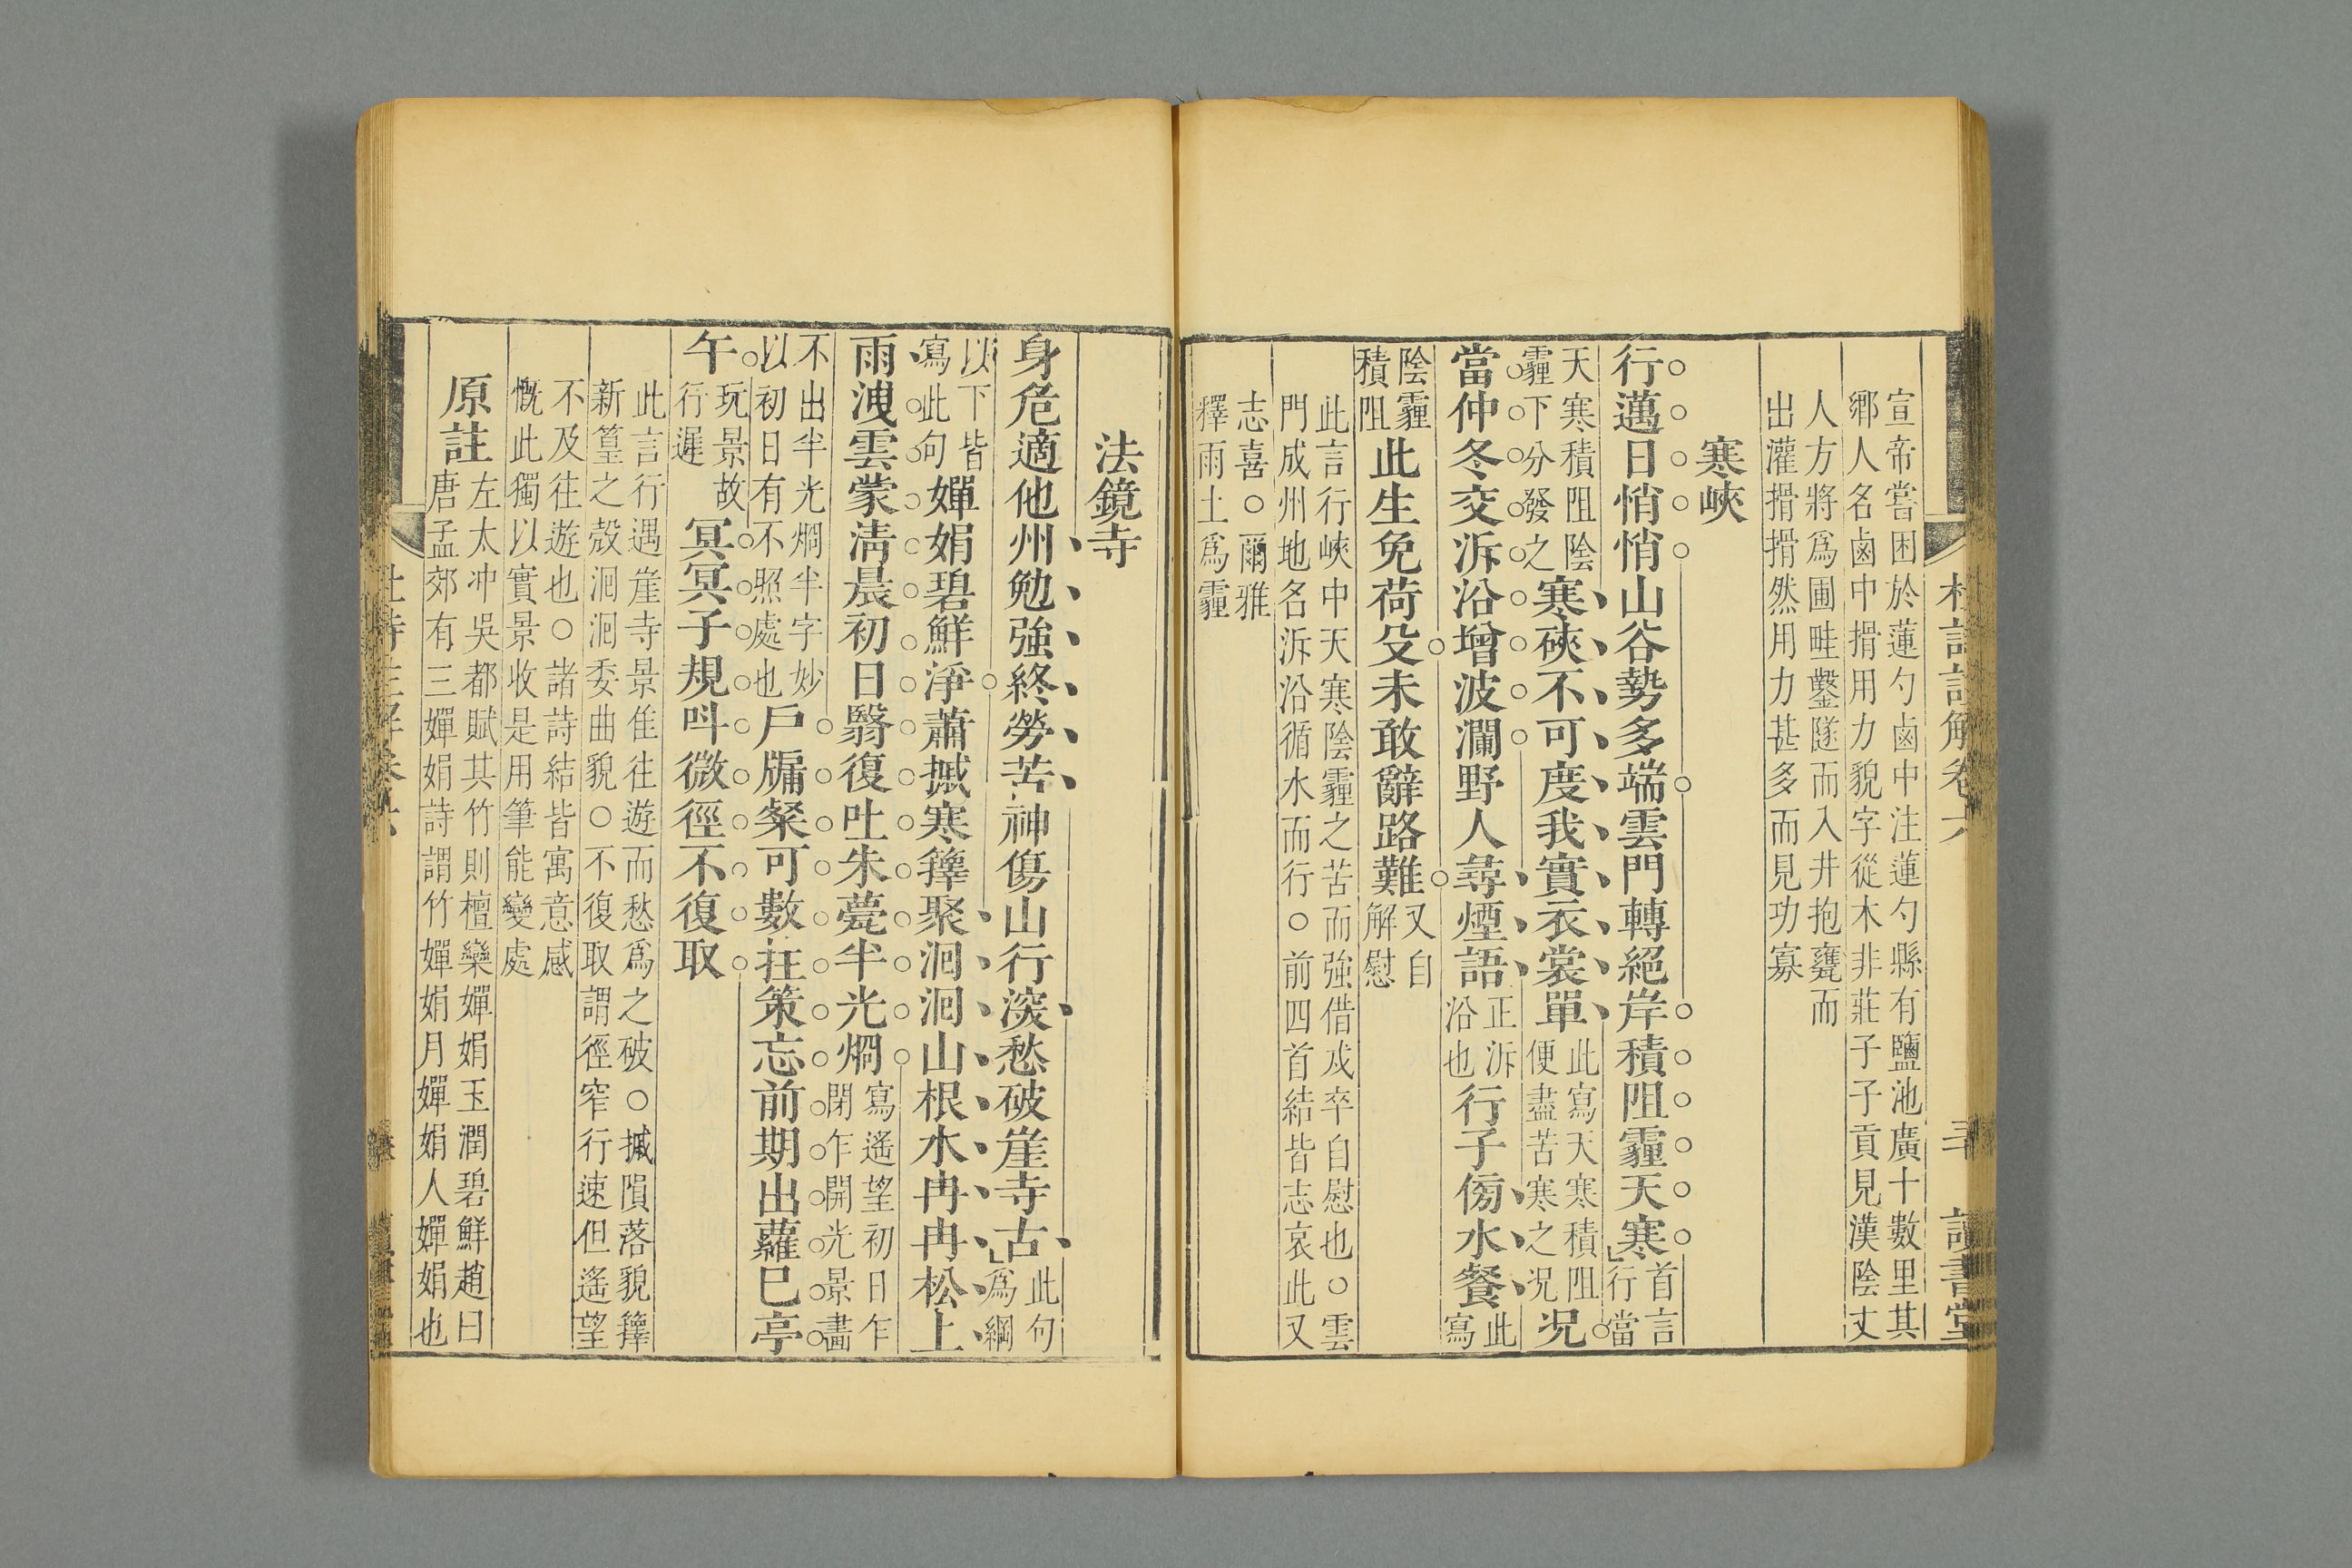 宣帝嘗困於蓮勺鹵中注蓮勺縣有鹽池廣十數里其
鄉人名鹵中搰用力貌字從木非莊子子貢見漢陰丈
人方將爲圃畦鑿隧而入井抱甕而
出灌搰搰然用力甚多而見功寡
寒峽
行邁日悄悄山谷勢多端雲門轉絕岸積阻霾天寒首言行當
天寒積阻陰霾下分發之寒硤不可度我實衣裳單此寫天寒積阻便盡苦寒之况况
當仲冬交泝沿增波瀾野人尋煙語正泝沿也行子傍水餐此寫
陰霾積阻此生免荷殳未敢辭路難又自解慰
此言行峽中天寒陰霾之苦而強借戍卒自慰也○雲
門成州地名泝沿循水而行○前四首結皆志哀此又
志喜○爾雅
釋雨土爲霾
杜詩註解卷六
讀書堂
法鏡寺
身危適他州勉強終勞苦神傷山行深愁破崖寺古此句爲綱
以下皆寫此句嬋娟碧鮮淨蕭摵寒籜聚洄洄山根水冉冉松上
雨洩雲蒙淸晨初日翳復吐朱甍半光烱寫遙望初日乍閉乍開光景畵
不出半光烱半字妙以初日有不照處也戶牖粲可數拄策忘前期出蘿巳亭
午玩景故行遲冥冥子規呌微徑不復取
此言行遇崖寺景隹往遊而愁爲之破○摵隕落貌籜
新篁之殼洄洄委曲貌○不復取謂徑窄行速但遙望
不及往遊也○諸詩結皆寓意感
慨此獨以實景收是用筆能變處
原註左太冲吳都賦其竹則檀欒嬋娟玉潤碧鮮趙曰
唐孟郊有三嬋娟詩謂竹嬋娟月嬋娟人嬋娟也